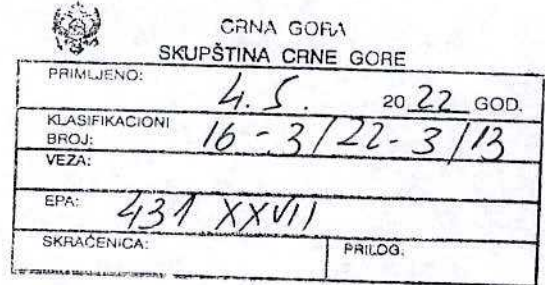 CRNA GORA
SKUPŠTINA CRNE GORE
PRIMLJENO: 4. 5. 20 22 GOD.
KLASIFIKACIONI
BROJ: 16 - 3/22 - 3/13
VEZA:
EPA: 431 XXVII
SKRAĆENICA: PRILOG: